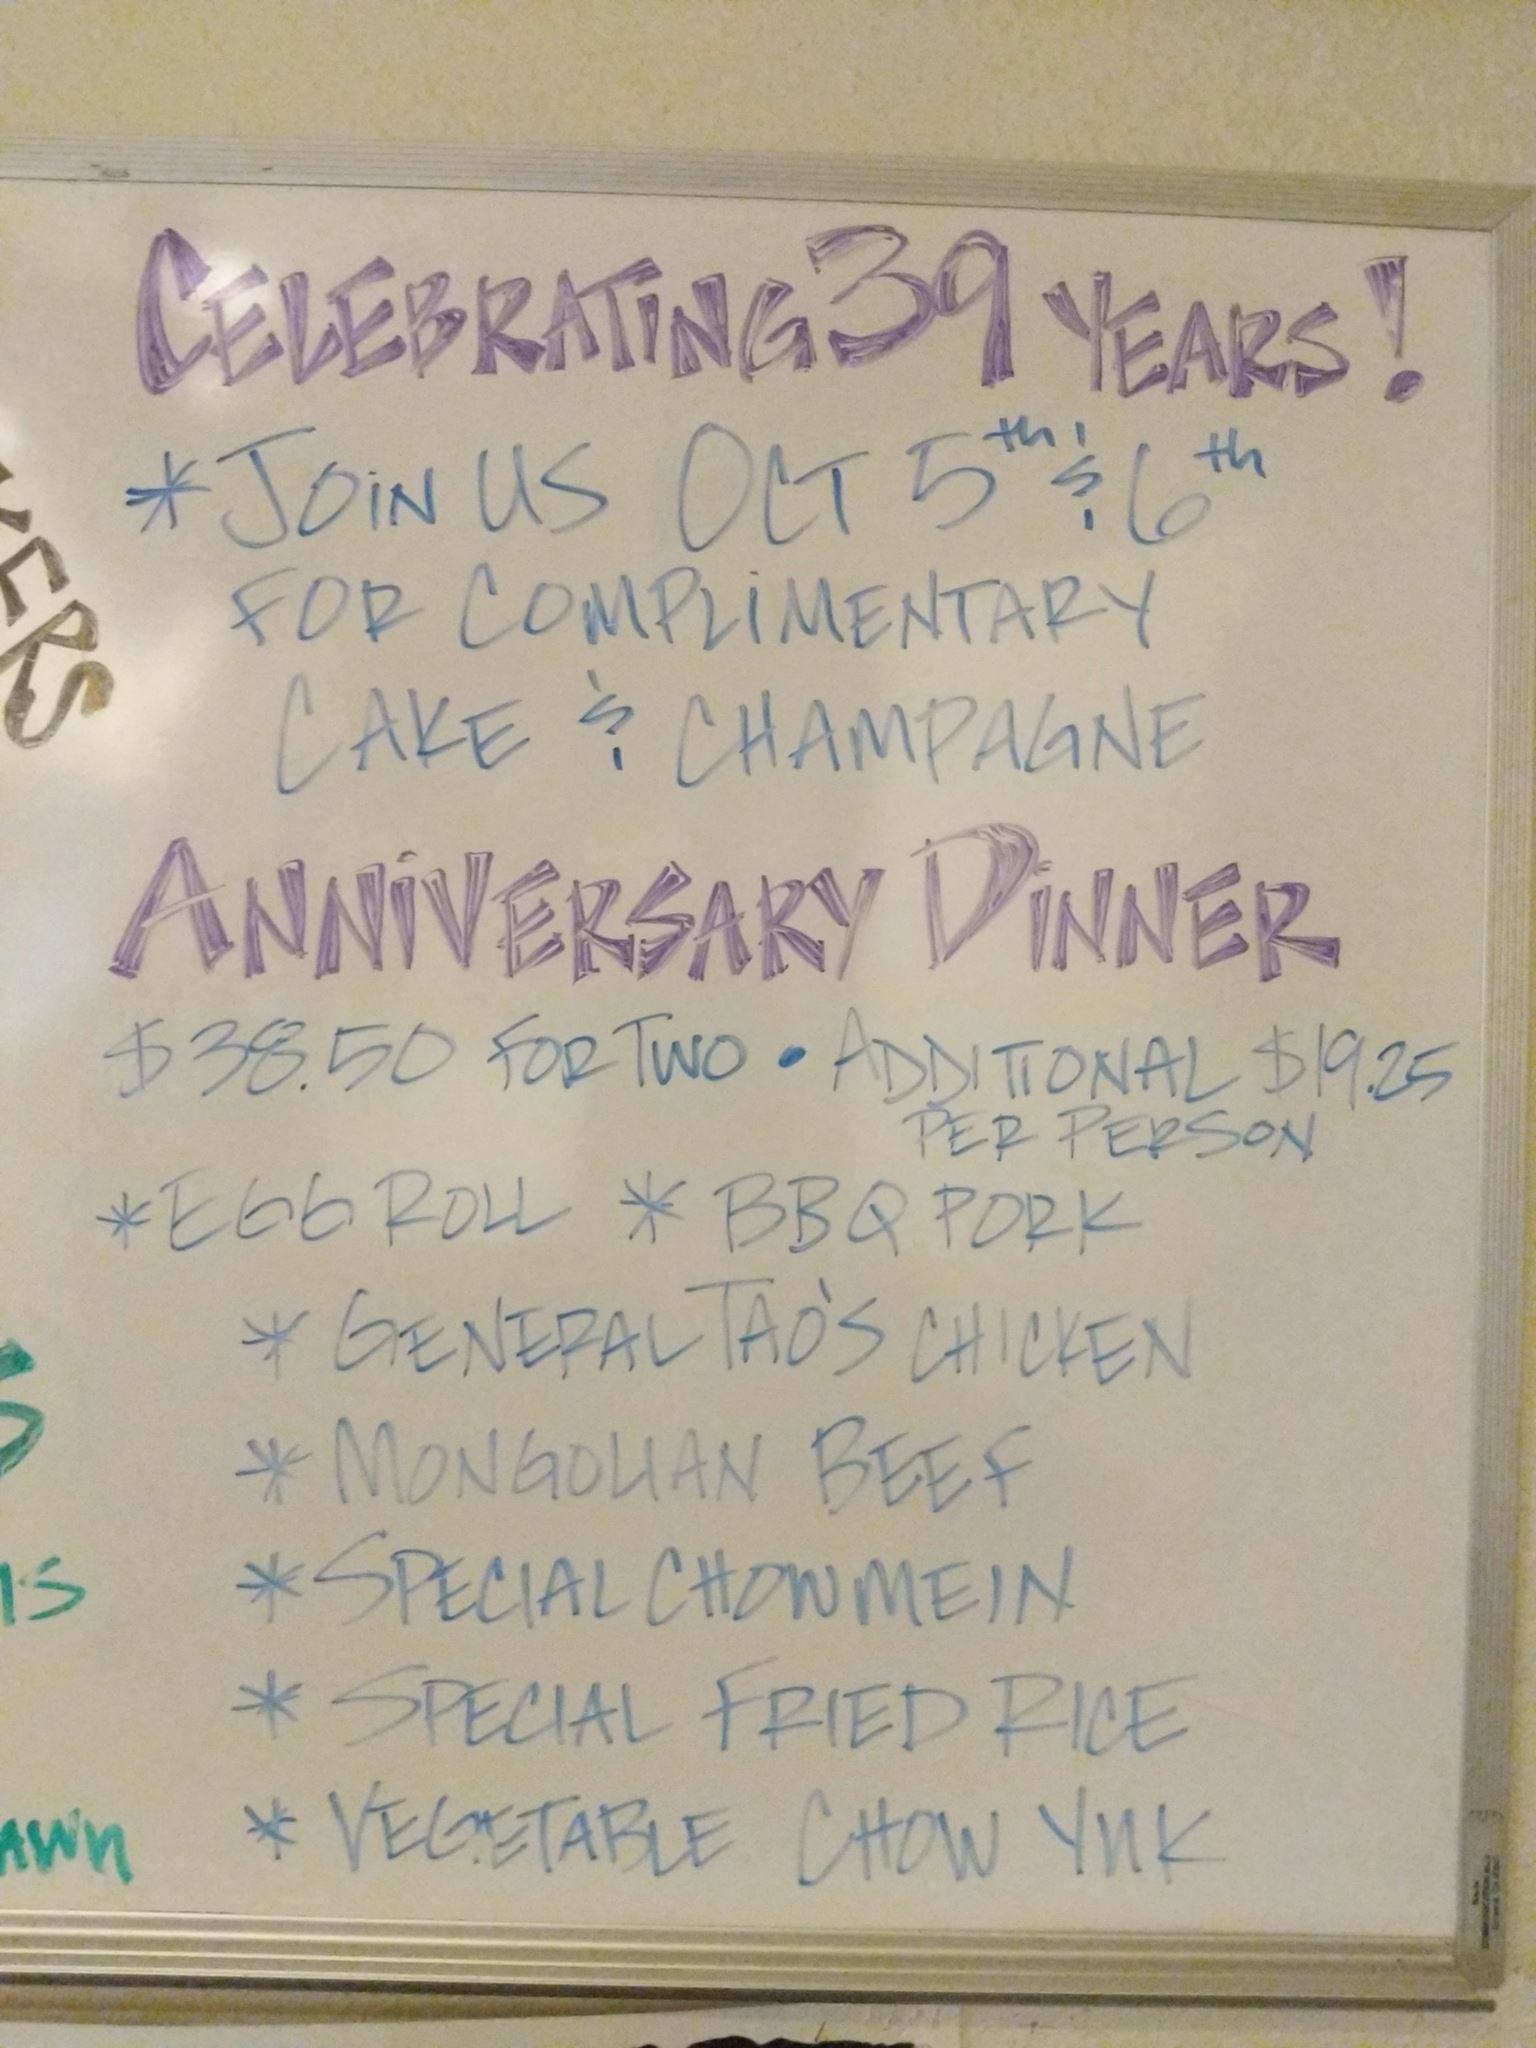 CELEBRATING 39 YEARS!
* JOIN US OCT 5th & 6th
FOR COMPLIMENTARY
CAKE & CHAMPAGNE
ANNIVERSARY DINNER
$38.50 FOR TWO • ADDITIONAL $19.25
PER PERSON
* EGG ROLL * BBQ PORK
* GENERAL TAO'S CHICKEN
* MONGOLIAN BEEF
* SPECIAL CHOW MEIN
* SPECIAL FRIED RICE
* VEGETABLE CHOW YUK
KERS
S
IS
AWN